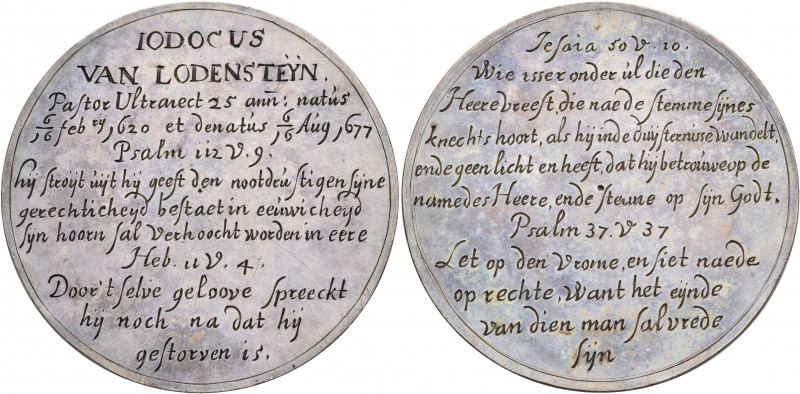 IODOCUS
VAN LODENSTEÿN.
Paſtor Ultraiect 25 añn: natús
6/16 feb rÿ 1620 et denatús 6/16 Aúg 1677
Psalm 112 V. 9.
hij ſtroÿt úÿt hij geeft den nootdrúſtigen ſÿne
gerechticheÿd beſtaet in eeúwicheyd
ſÿn hoorn ſal verhoocht worden in eere
Heb. 11 V. 4.
Door't ſelve geloove ſpreeckt
hij noch na dat hij
geſtorven is.
Jeſaia 50 V. 10.
Wie isser onder úl die den
Heere vreeſt, die nae de ſtemme ſÿnes
knechts hoort, als hij in de duÿſterniſſe wandelt,
ende geen licht en heeft, dat hij betroúwe op de
name des Heere, ende ſteune op ſÿn Godt.
Psalm 37. V 37
Let op den Vrome, en ſiet nae de
op rechte, Want het eÿnde
van dien man ſal vrede
ſÿn